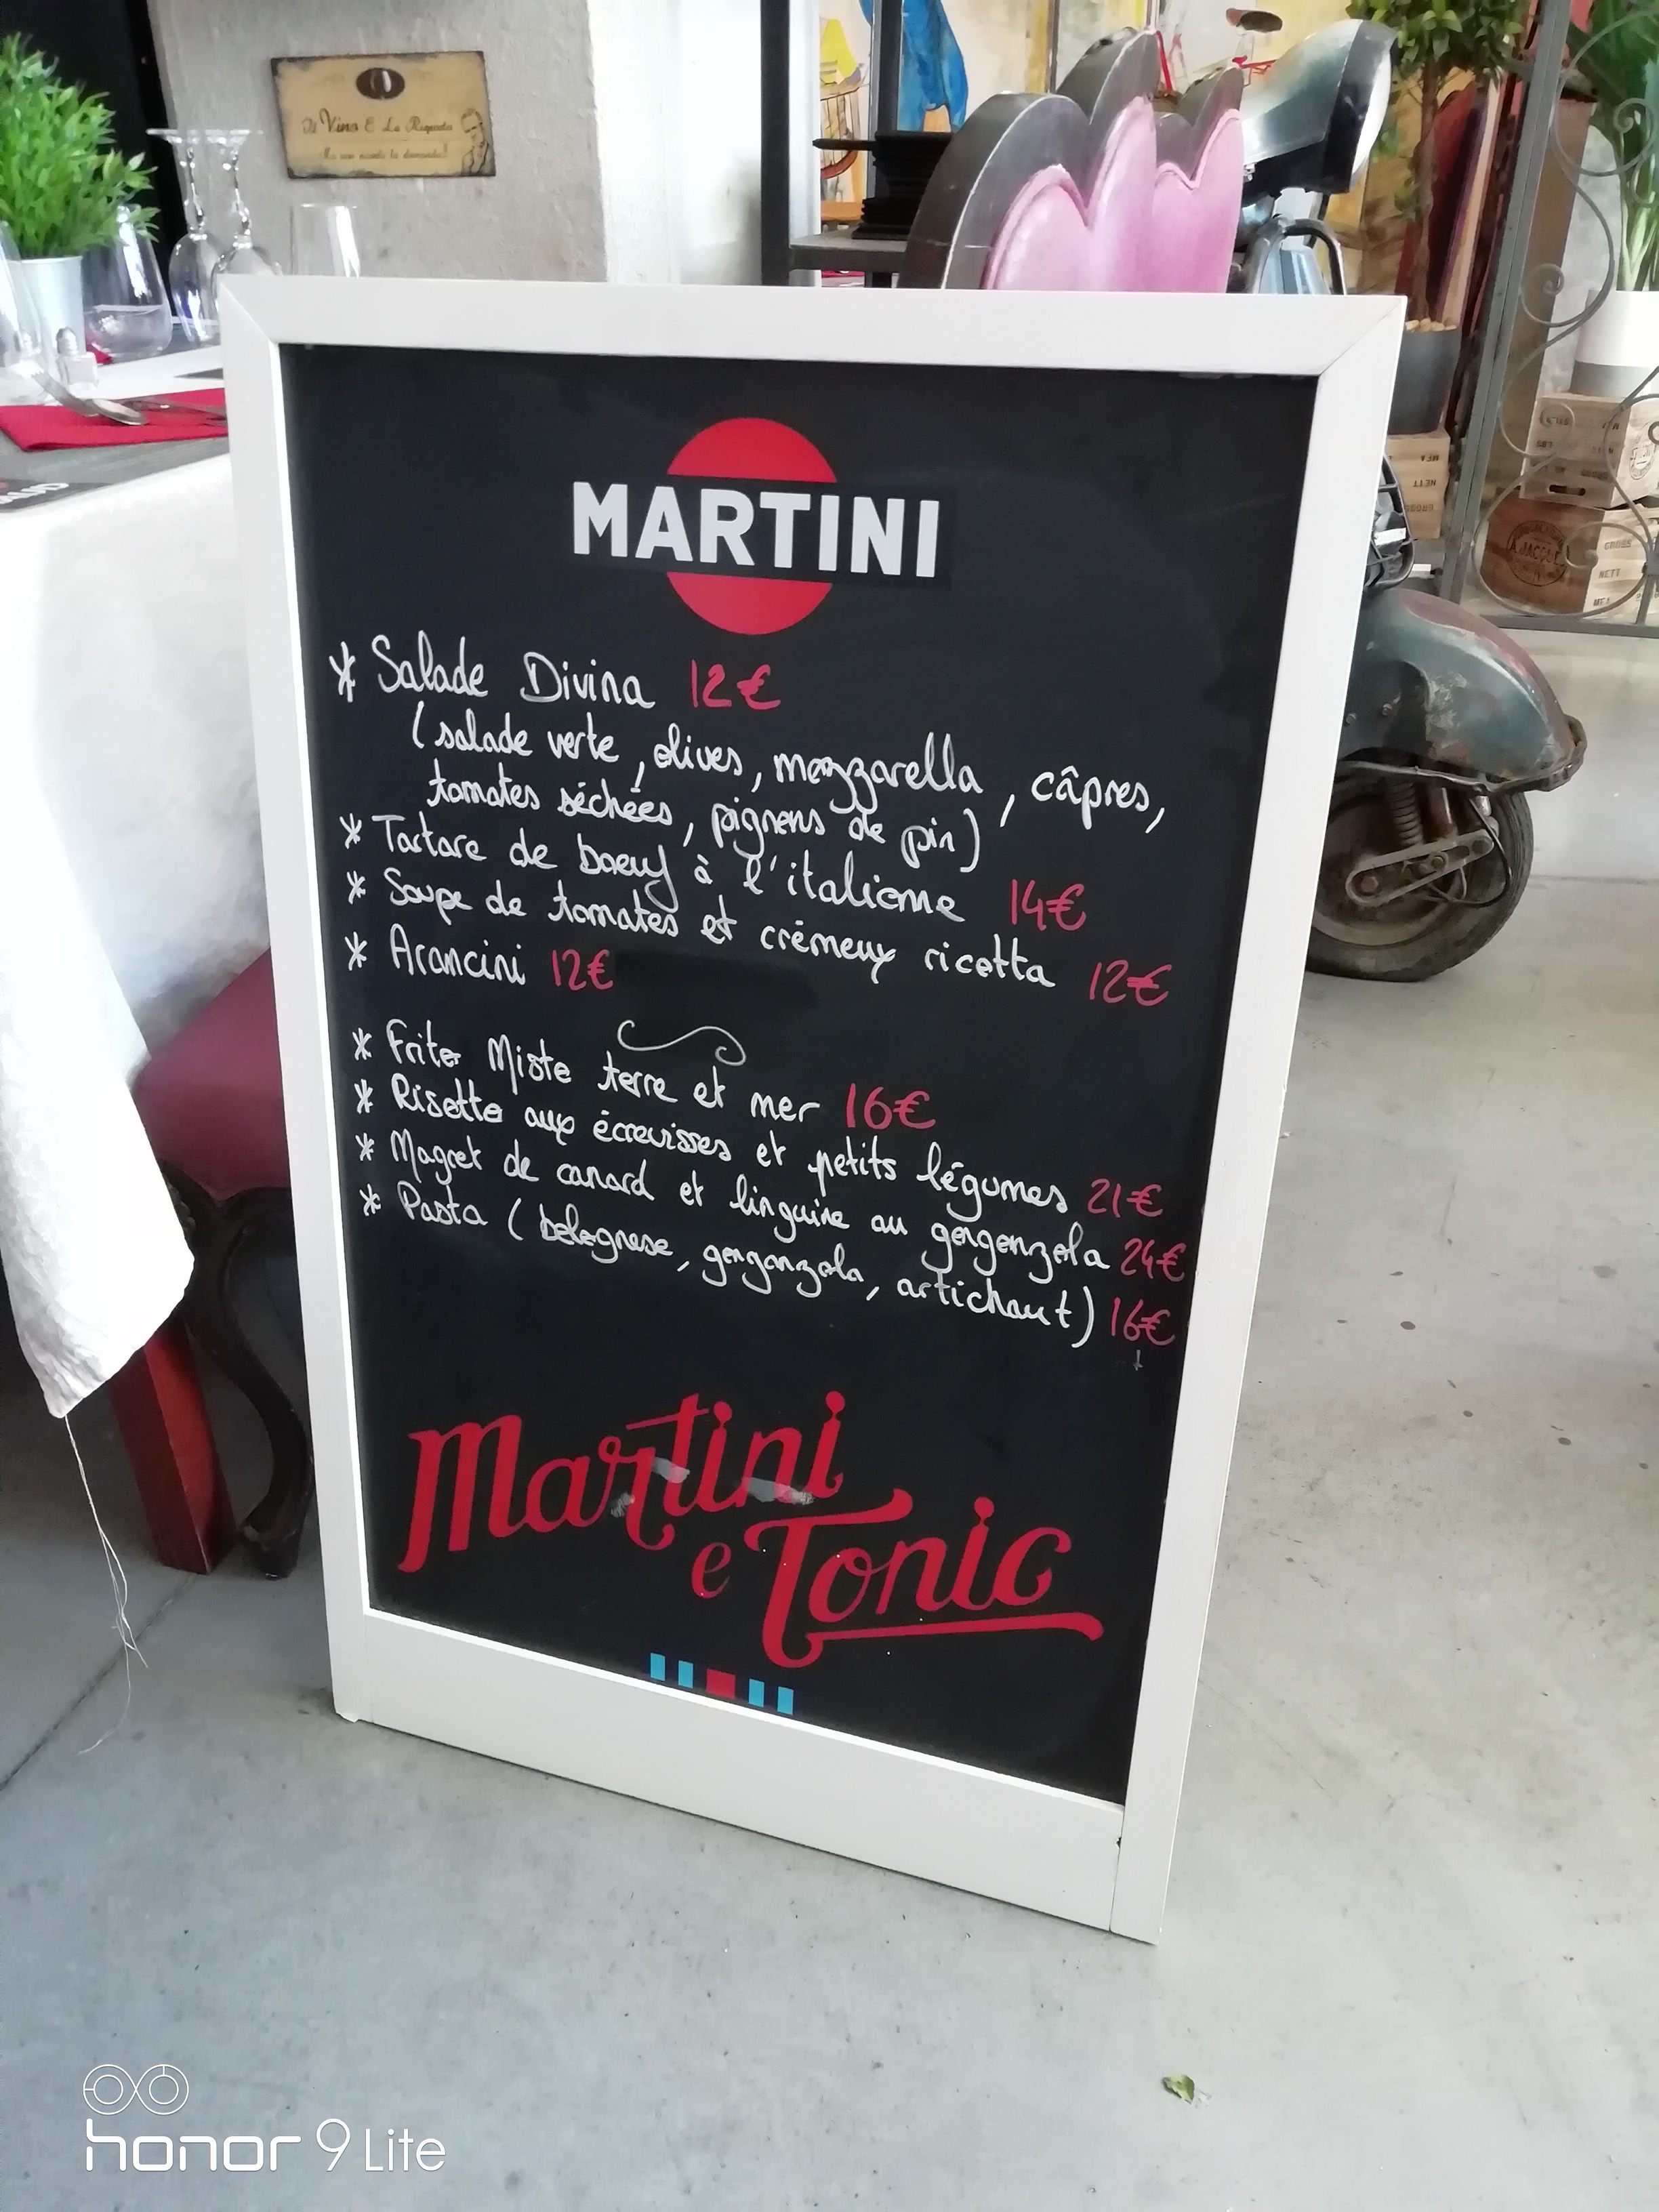 Il Vino E La Risposta
Ma non ricordo la domanda!
MARTINI
* Salade Divina 12€
(salade verte, olives, mozzarella, câpres,
tomates séchées, pignons de pin)
* Tartare de boeuf à l'italienne 14€
* Soupe de tomates et crémeux ricotta 12€
* Arancini 12€
* Frito Misto terre et mer 16€
* Risotto aux écrevisses et petits légumes 21€
* Magret de canard et linguine au gorgonzola 24€
* Pasta (bolognese, gorgonzola, artichaut) 16€
Martini
e Tonic
GROSS
NETT
honor 9 Lite